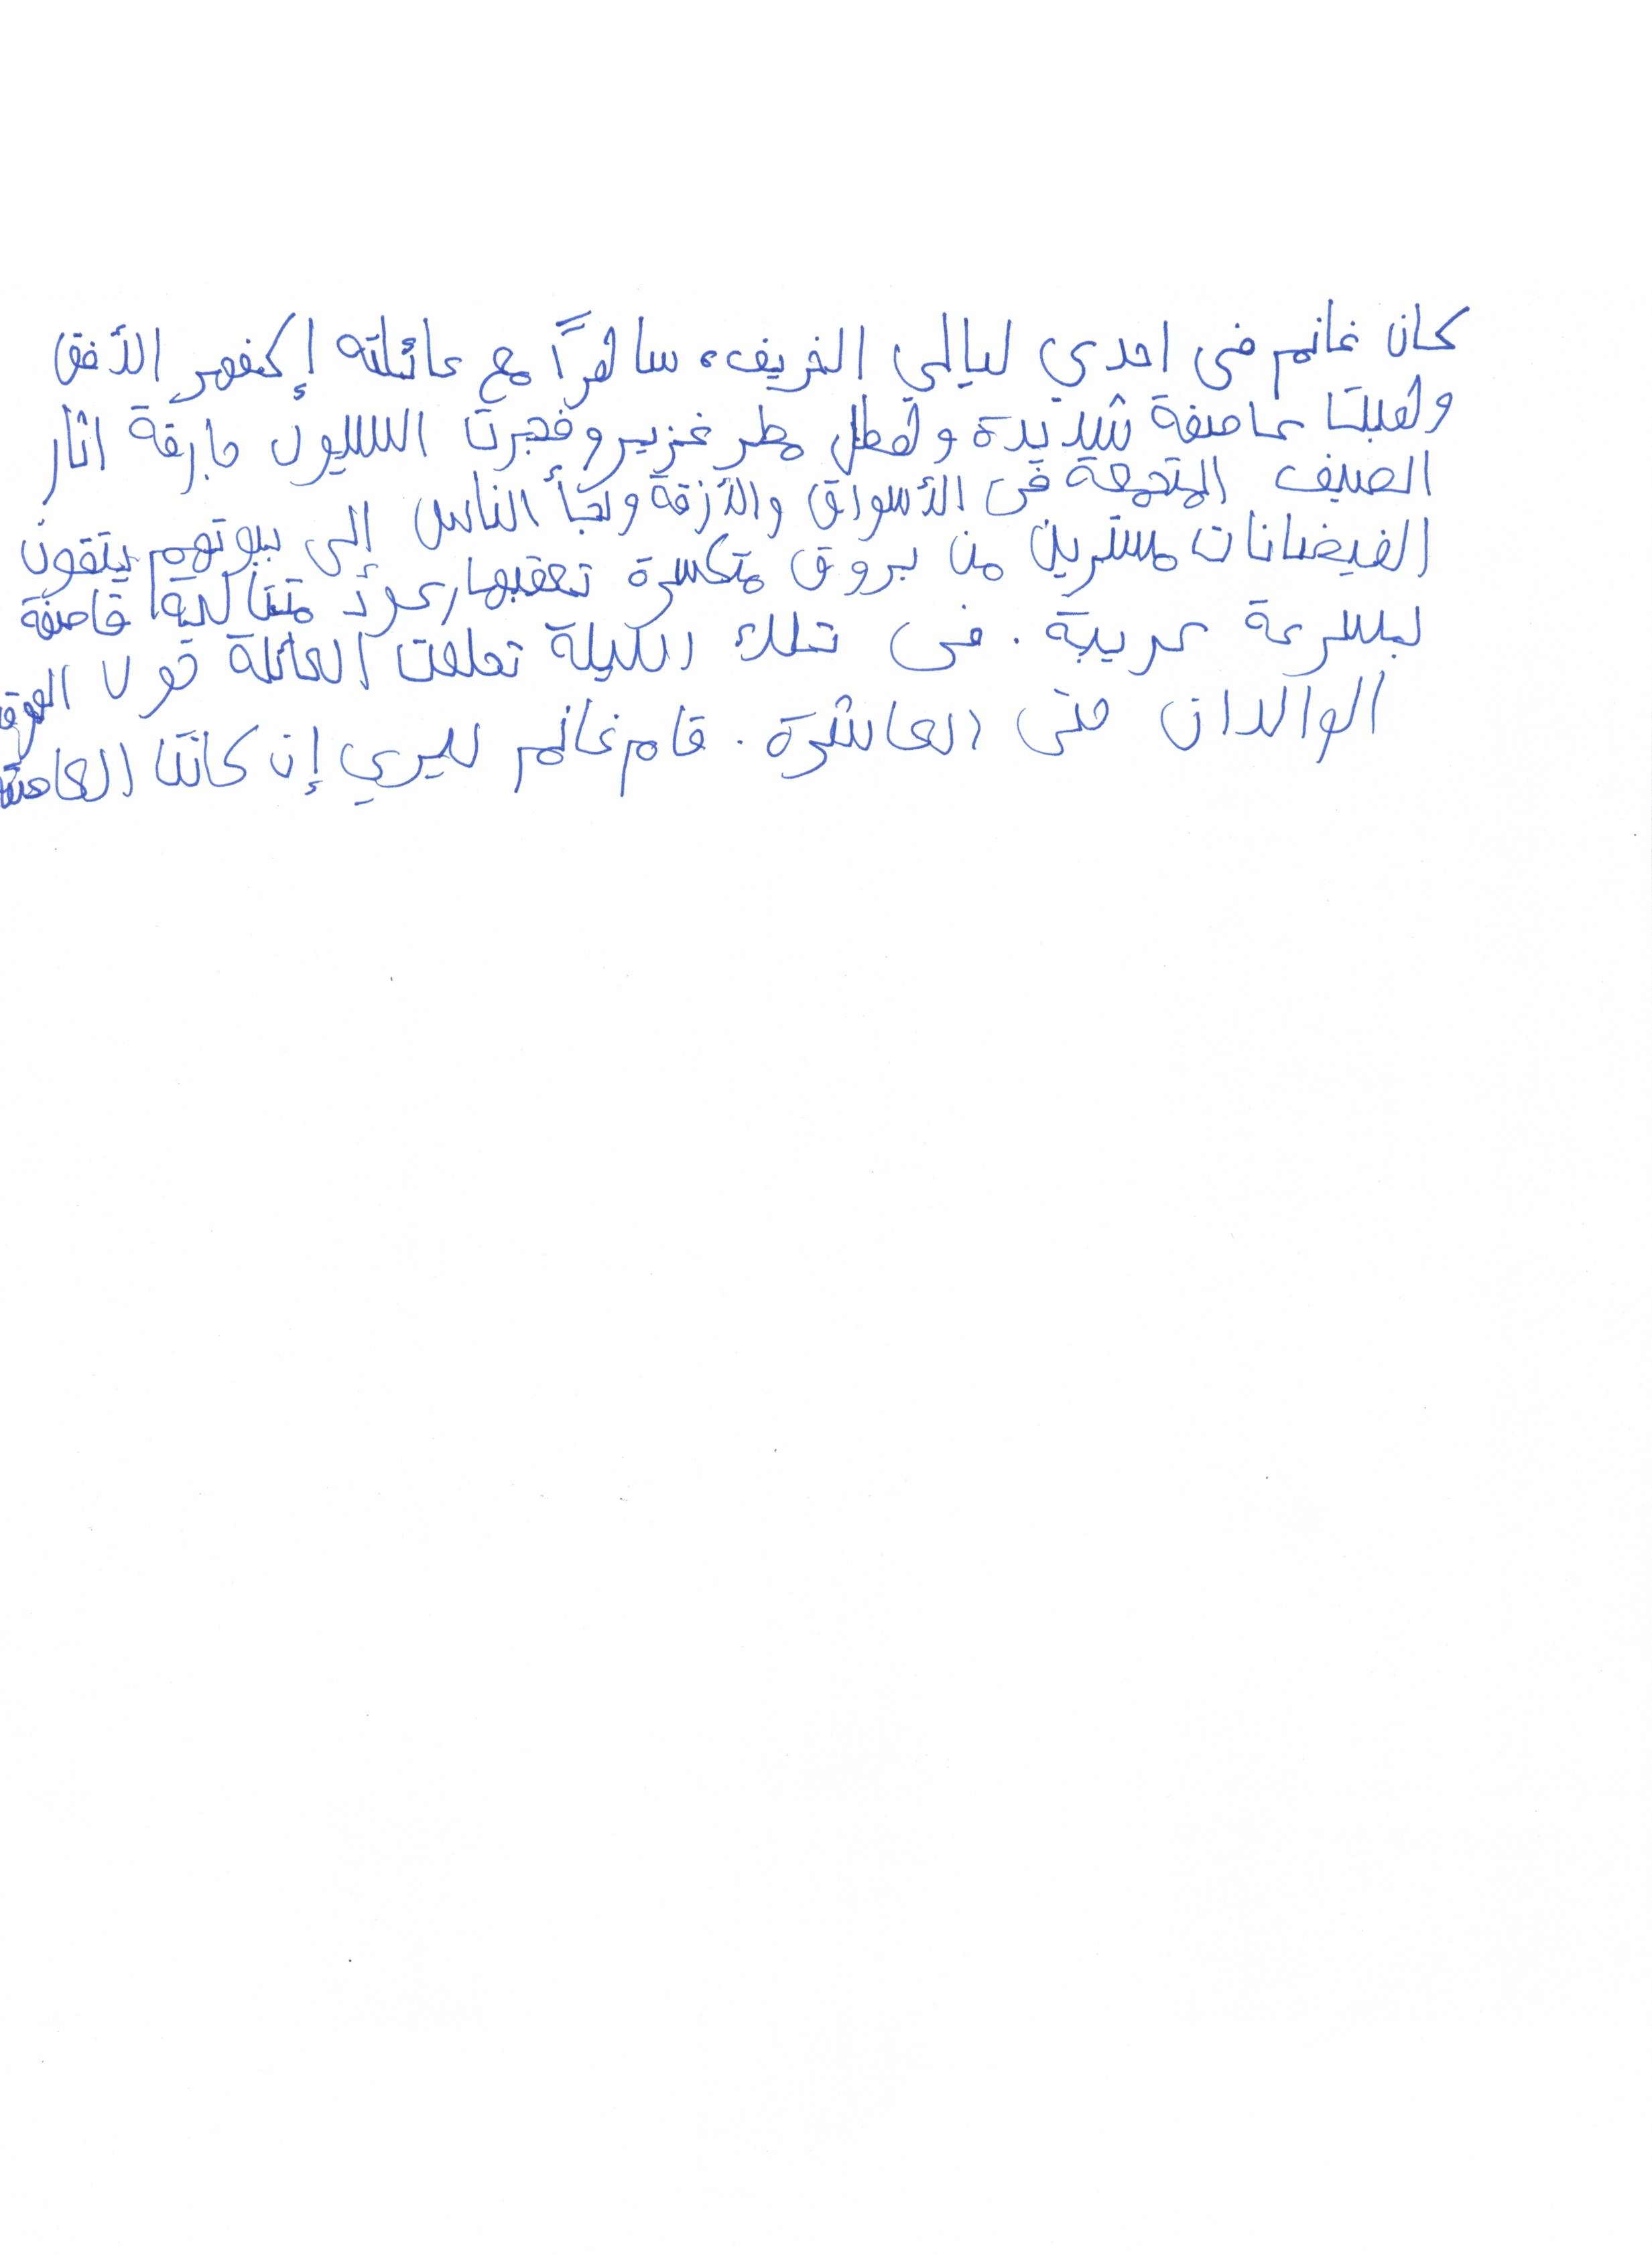 كان غانم فى احدي ليالى الخريف، ساهراً مع عائلته إكفهر الأفق
وهبت عاصفة شديدة وهطل مطر غزير وفجرت السيول جارفة اثار
الصيف المتجمعة فى الأسواق والأزقة ولجأ الناس إلى بيوتهم يتقون
الفيضانات مستترين من بروق متكسرة تعقبها رعود متتالية قاصفة
بسرعة عريبة . فى تلك الليلة تحلقت العائلة حول
الوالدان حتى العاشرة . قام غانم ليري إن كانت